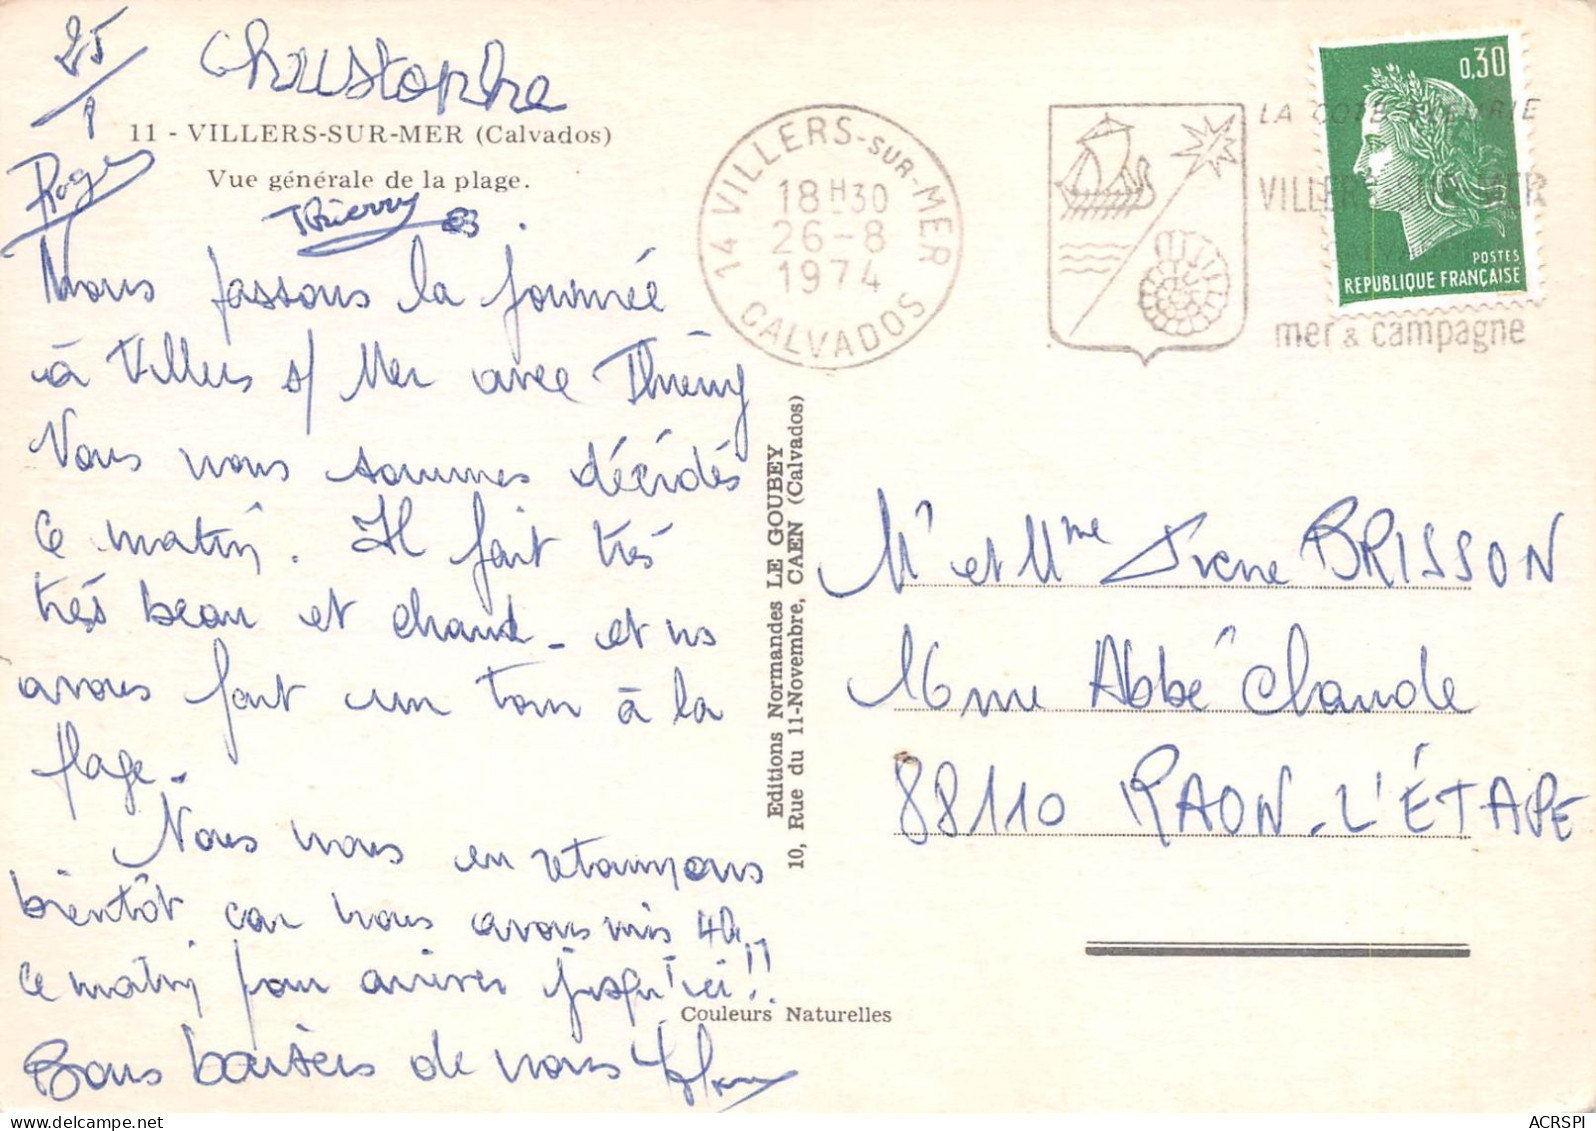 25/8
Christophe
11 - VILLERS-SUR-MER (Calvados)
Vue générale de la plage.
Roger
Thierry
Nous passons la journée
à Villers s/ Mer avec Thierry
Nous nous sommes décidés
ce matin. Il fait très
très beau et chaud - et ns
avons fait un tour à la
plage -
Nous nous en retournons
bientôt car nous avons mis 4h
ce matin pour arriver jusqu'ici!!
Bons baisers de nous
14 VILLERS-SUR-MER
18H30
26-8
1974
CALVADOS
LA COTE FLEURIE
VILLERS-SUR-MER
mer & campagne
0,30
POSTES
REPUBLIQUE FRANÇAISE
Editions Normandes LE GOUBEY
10, Rue du 11-Novembre, CAEN (Calvados)
Mr et Mme BRISSON
16 rue Abbé Claude
88110 RAON-L'ÉTAPE
Couleurs Naturelles
ACRSPI